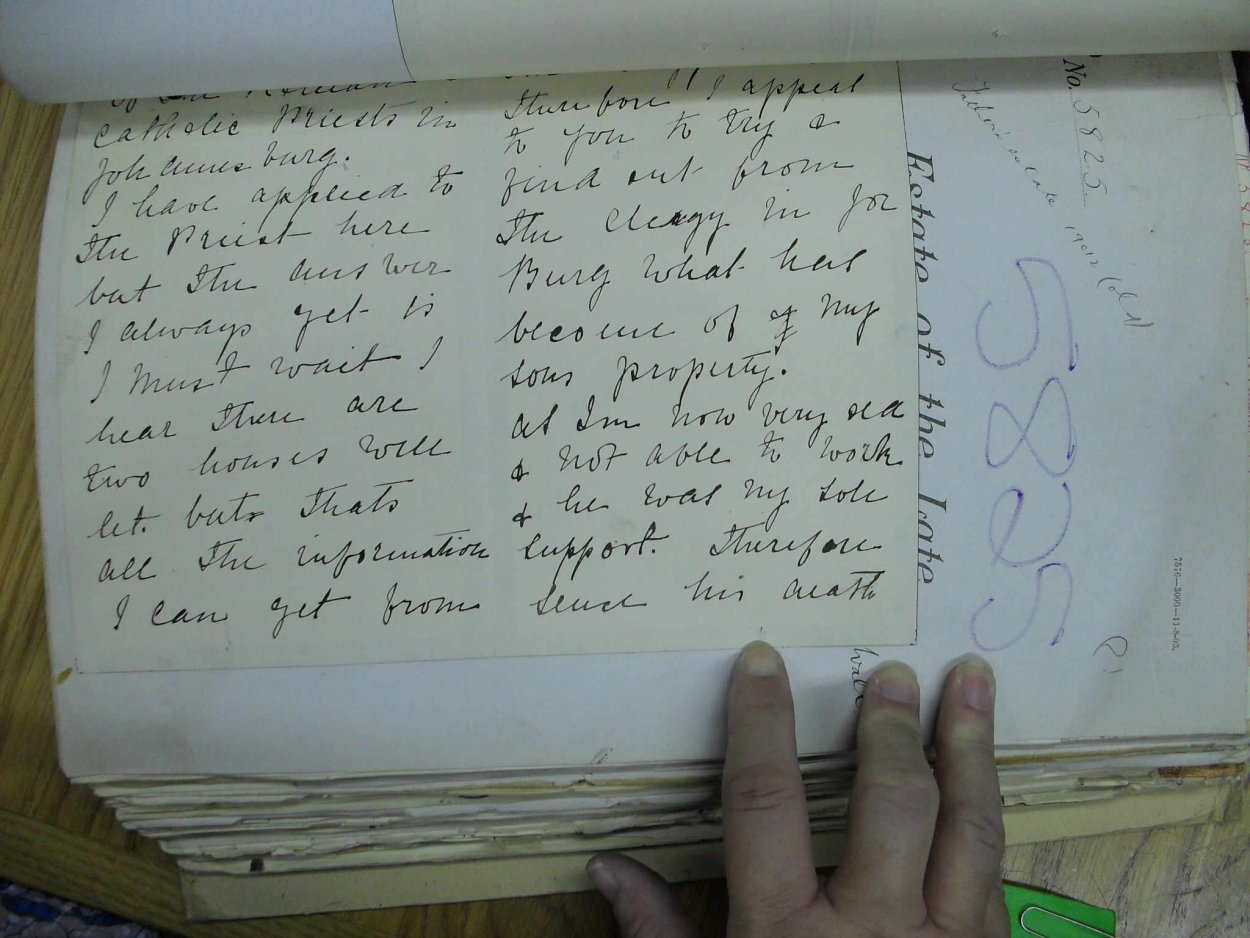 Catholic Priests in
Johannesburg.
I have applied to
the Priest here
but the answer
I always get is
I must wait I
hear there are
two houses well
let. but thats
all the information
I can get from
therefore I appeal
to you to try &
find out from
the Clergy in Jo
Burg what has
become of of my
sons property.
as Im now very old
& not able to work
& he was my sole
support. Therefore
sence his death
No. 5825
Estate of the Late
5825
7576—3000—11-8-03.